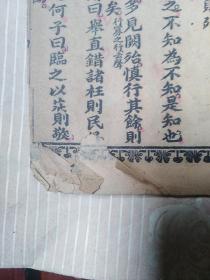 之不知為不知是知也
多見闕殆慎行其餘則
矣行寡之行去聲
曰舉直錯諸枉則民
何子曰臨之以莊則敬